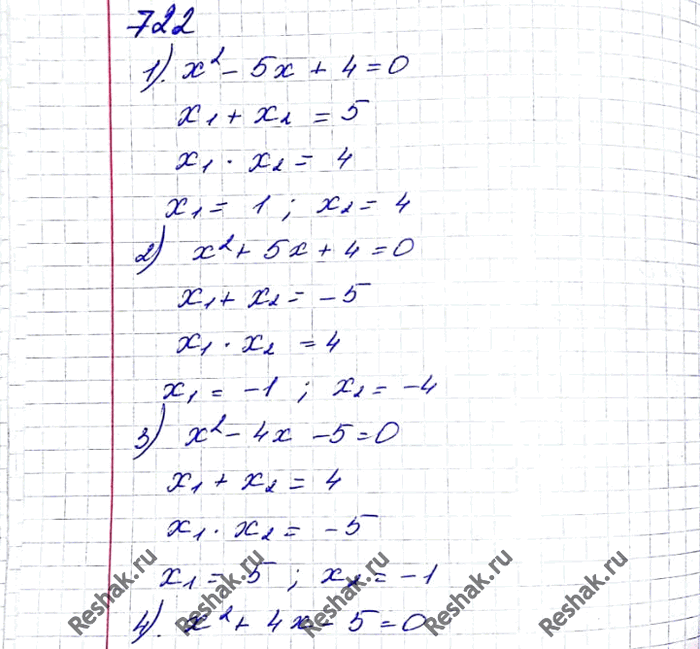 722
1). x² - 5x + 4 = 0
x₁ + x₂ = 5
x₁ · x₂ = 4
x₁ = 1 ; x₂ = 4
2) x² + 5x + 4 = 0
x₁ + x₂ = -5
x₁ · x₂ = 4
x₁ = -1 ; x₂ = -4
3) x² - 4x - 5 = 0
x₁ + x₂ = 4
x₁ · x₂ = -5
x₁ = 5 ; x₂ = -1
4). x² + 4x - 5 = 0
Reshak.ru Reshak.ru Reshak.ru Reshak.ru Reshak.ru